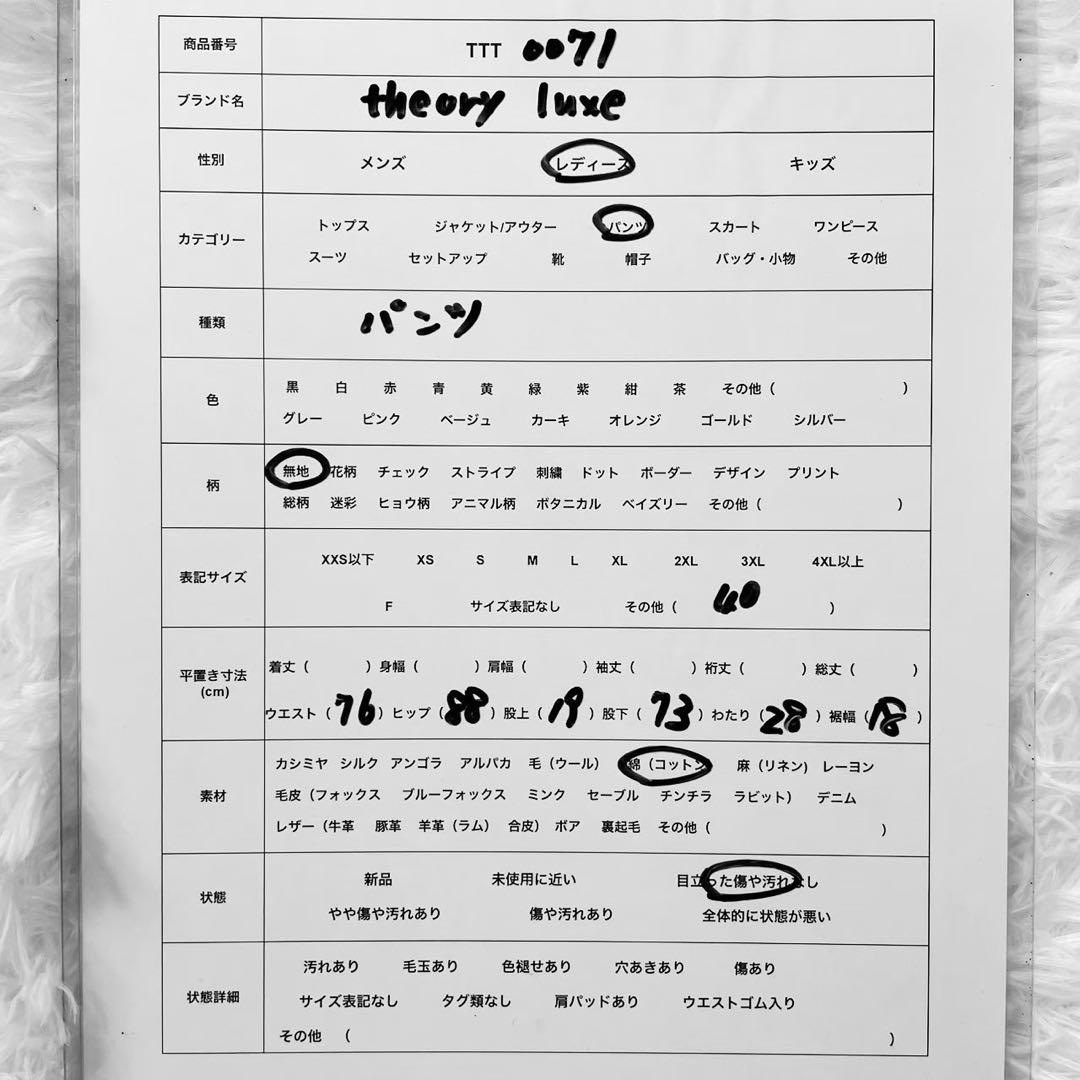 商品番号 TTT 0071
ブランド名 theory luxe
性別 メンズ レディース キッズ
カテゴリー
トップス ジャケット/アウター パンツ スカート ワンピース
スーツ セットアップ 靴 帽子 バッグ・小物 その他
種類 パンツ
色
黒 白 赤 青 黄 緑 紫 紺 茶 その他（ ）
グレー ピンク ベージュ カーキ オレンジ ゴールド シルバー
柄
無地 花柄 チェック ストライプ 刺繍 ドット ボーダー デザイン プリント
総柄 迷彩 ヒョウ柄 アニマル柄 ボタニカル ペイズリー その他（ ）
表記サイズ
XXS以下 XS S M L XL 2XL 3XL 4XL以上
F サイズ表記なし その他（ 40 ）
平置き寸法
(cm)
着丈（ ）身幅（ ）肩幅（ ）袖丈（ ）裄丈（ ）総丈（ ）
ウエスト（76）ヒップ（88）股上（19）股下（73）わたり（28）裾幅（18）
素材
カシミヤ シルク アンゴラ アルパカ 毛（ウール） 綿（コットン） 麻（リネン） レーヨン
毛皮（フォックス ブルーフォックス ミンク セーブル チンチラ ラビット） デニム
レザー（牛革 豚革 羊革（ラム） 合皮） ボア 裏起毛 その他（ ）
状態
新品 未使用に近い 目立った傷や汚れなし
やや傷や汚れあり 傷や汚れあり 全体的に状態が悪い
状態詳細
汚れあり 毛玉あり 色褪せあり 穴あきあり 傷あり
サイズ表記なし タグ類なし 肩パッドあり ウエストゴム入り
その他 （ ）